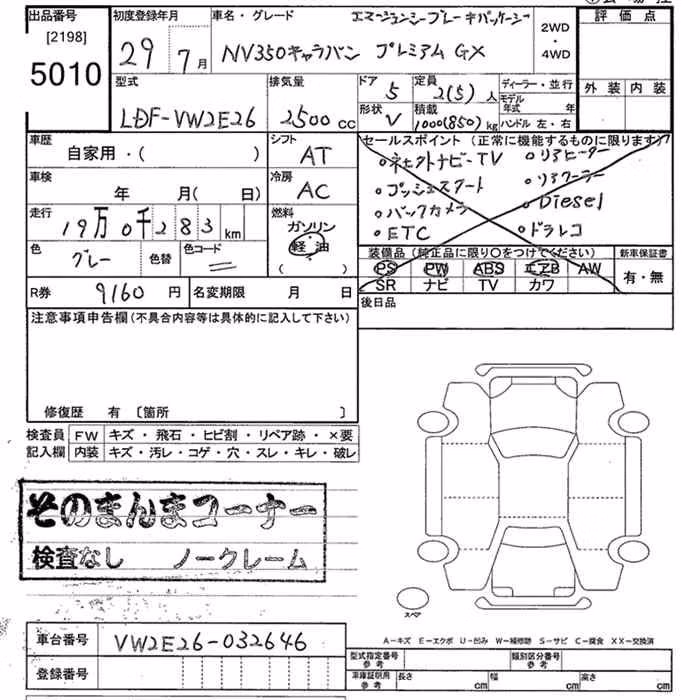 出品番号
[2198]
5010
初度登録年月
29 7月
車名・グレード
エマージェンシーブレーキパッケージ
NV350キャラバン プレミアムGX
2WD
・
4WD
評価点
外装 内装
型式
LDF-VW2E26
排気量
2500cc
ドア
5
定員
2(5)人
形状
V
積載
1000(850)kg
ディーラー・並行
モデル年式 年
ハンドル 左・右
車歴
自家用・( )
シフト
AT
車検
年 月(日)
冷房
AC
走行
19万0千283km
燃料
ガソリン
軽油
( )
色
グレー
色替
色コード
R券 9160円
名変期限 月 日
セールスポイント (正常に機能するものに限ります)
・コネクトナビ・TV ・リアヒーター
・プッシュスタート ・リアクーラー
・バックカメラ ・Diesel
・ETC ・ドラレコ
装備品 (純正品に限り○をつけてください)
PS PW ABS エアB AW
SR ナビ TV カワ
新車保証書
有・無
後日品
注意事項申告欄 (不具合内容等は具体的に記入して下さい)
修復歴 有 〔箇所 〕
検査員記入欄
FW キズ・飛石・ヒビ割・リペア跡・×要
内装 キズ・汚レ・コゲ・穴・スレ・キレ・破レ
そのまんまコーナー
検査なし ノークレーム
スペア
A-キズ E-エクボ U-凹み W-補修跡 S-サビ C-腐食 XX-交換済
車台番号 VW2E26-032646
登録番号
型式指定番号 参考
類別区分番号 参考
車庫証明用 参考
長さ cm 幅 cm 高さ cm